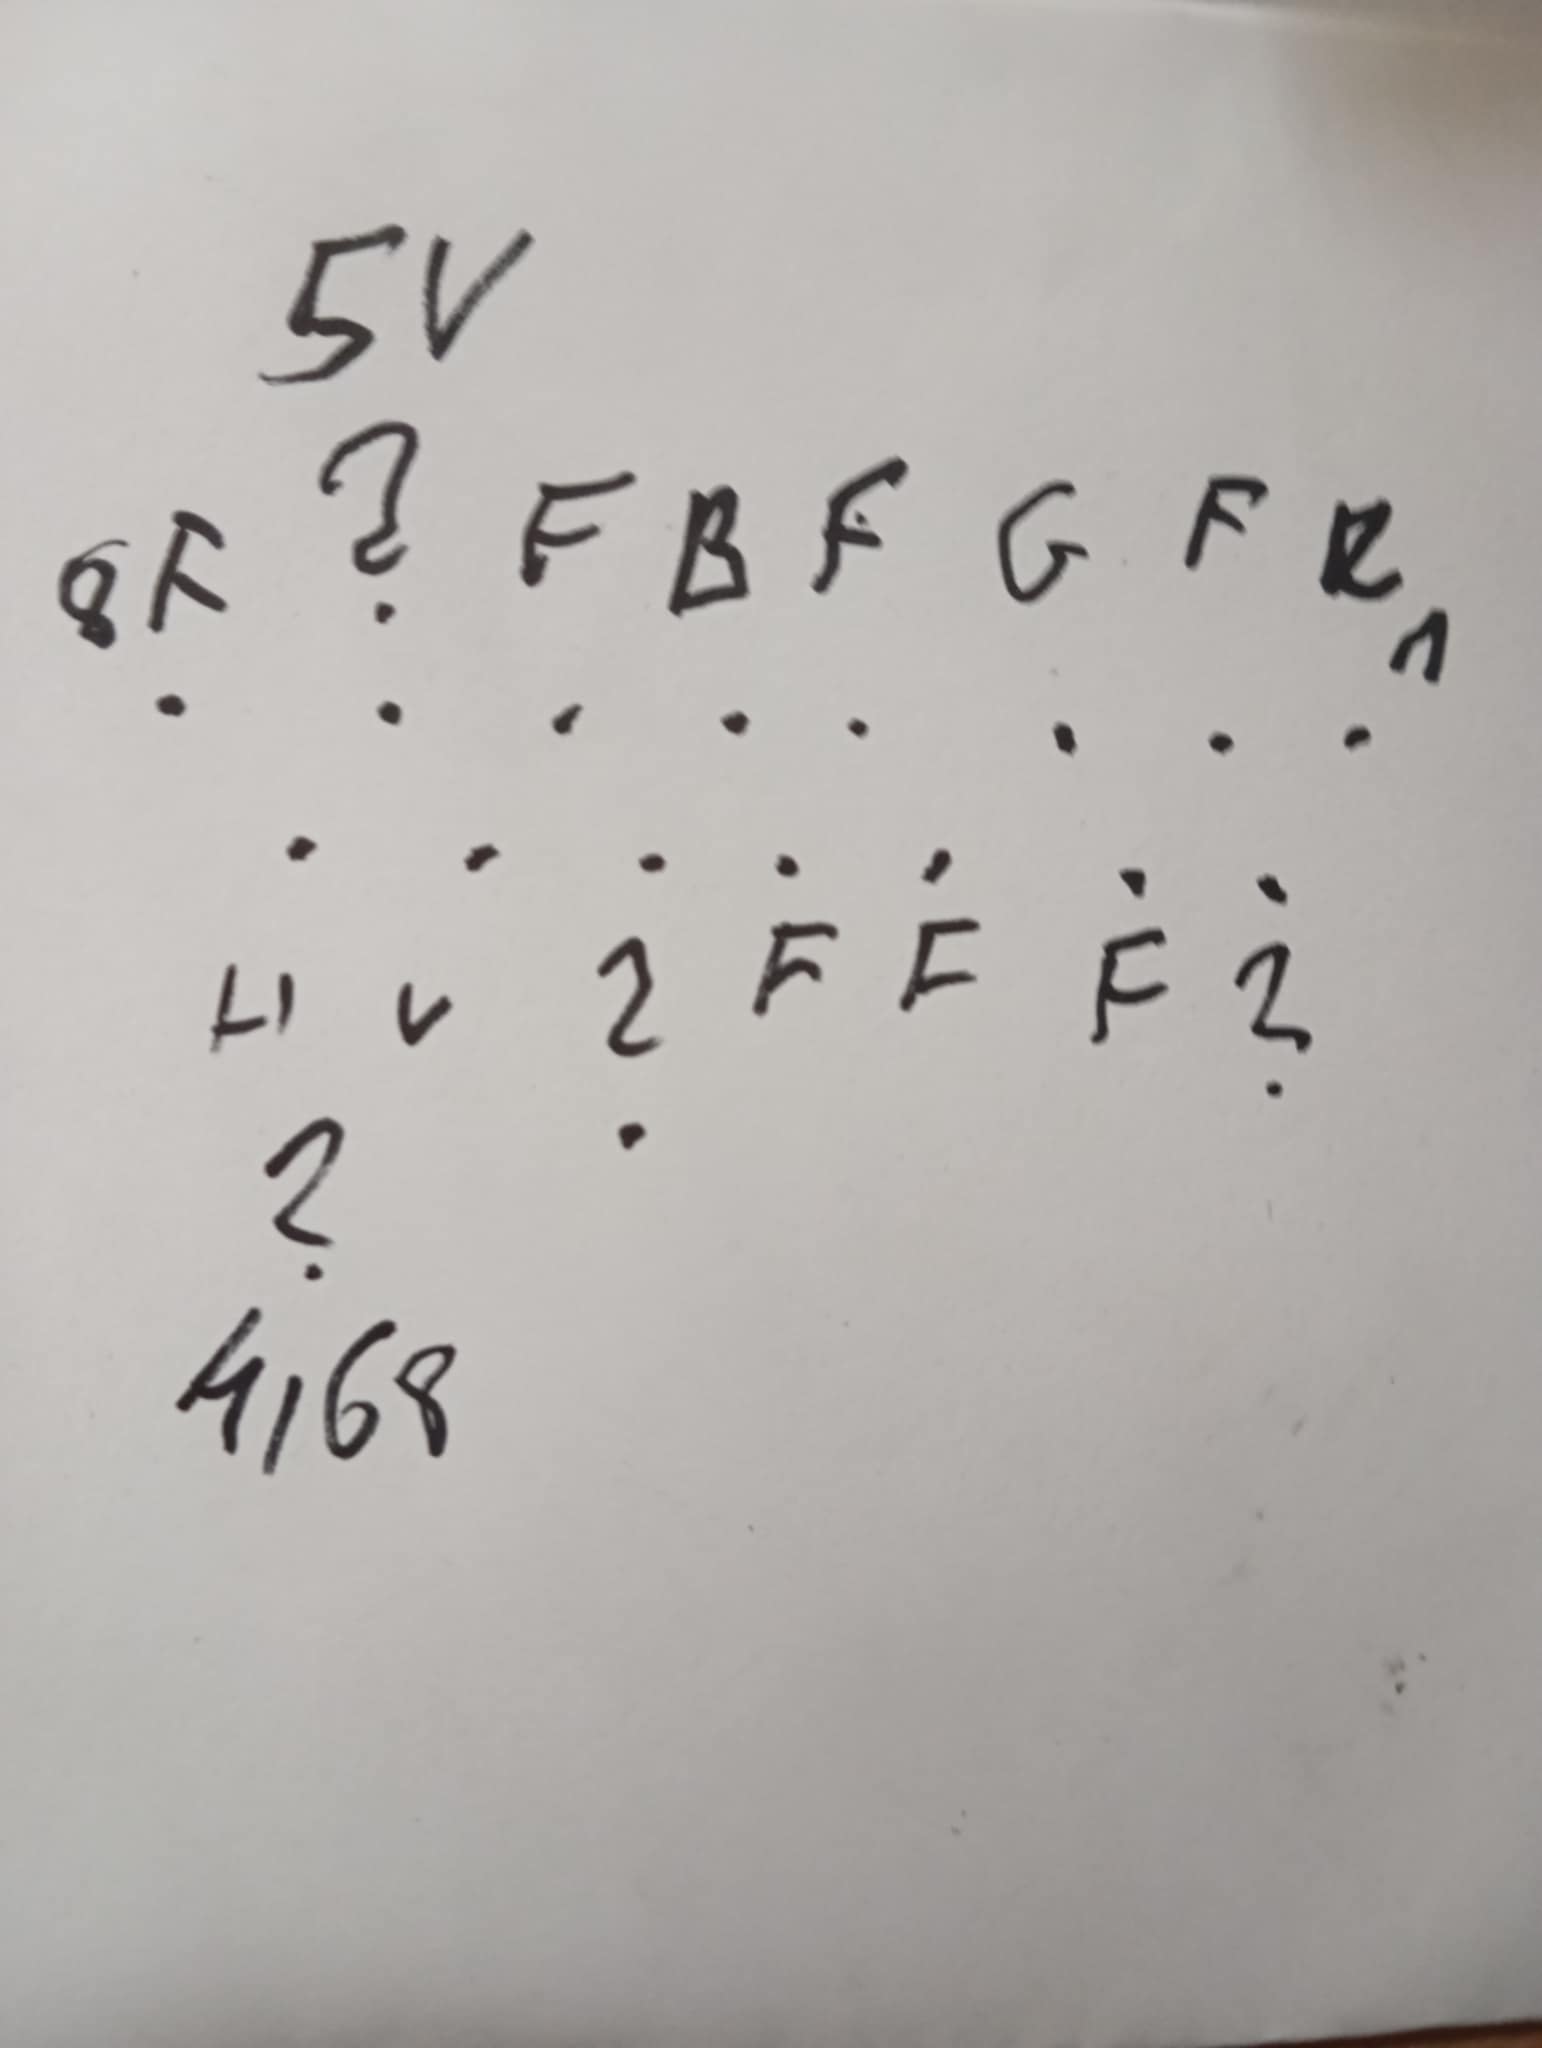 5V
8F ? F B F G F R 1
H V ? F F F ?
?
4,68